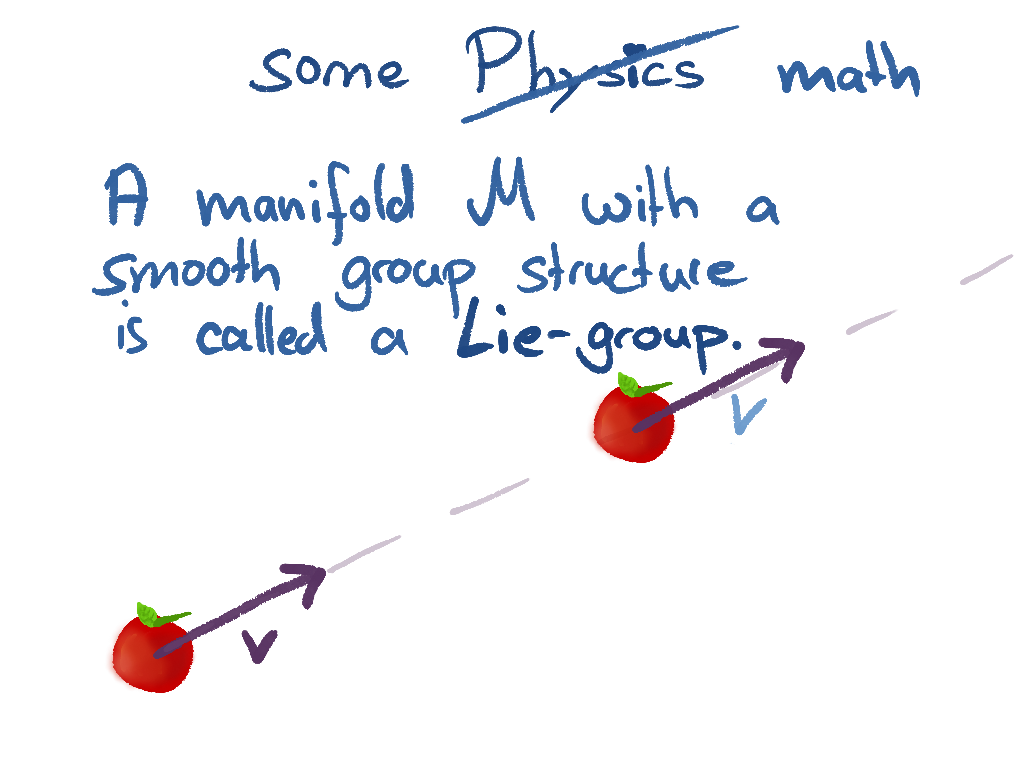 some Physics math
A manifold M with a
smooth group structure
is called a Lie-group.
v
v